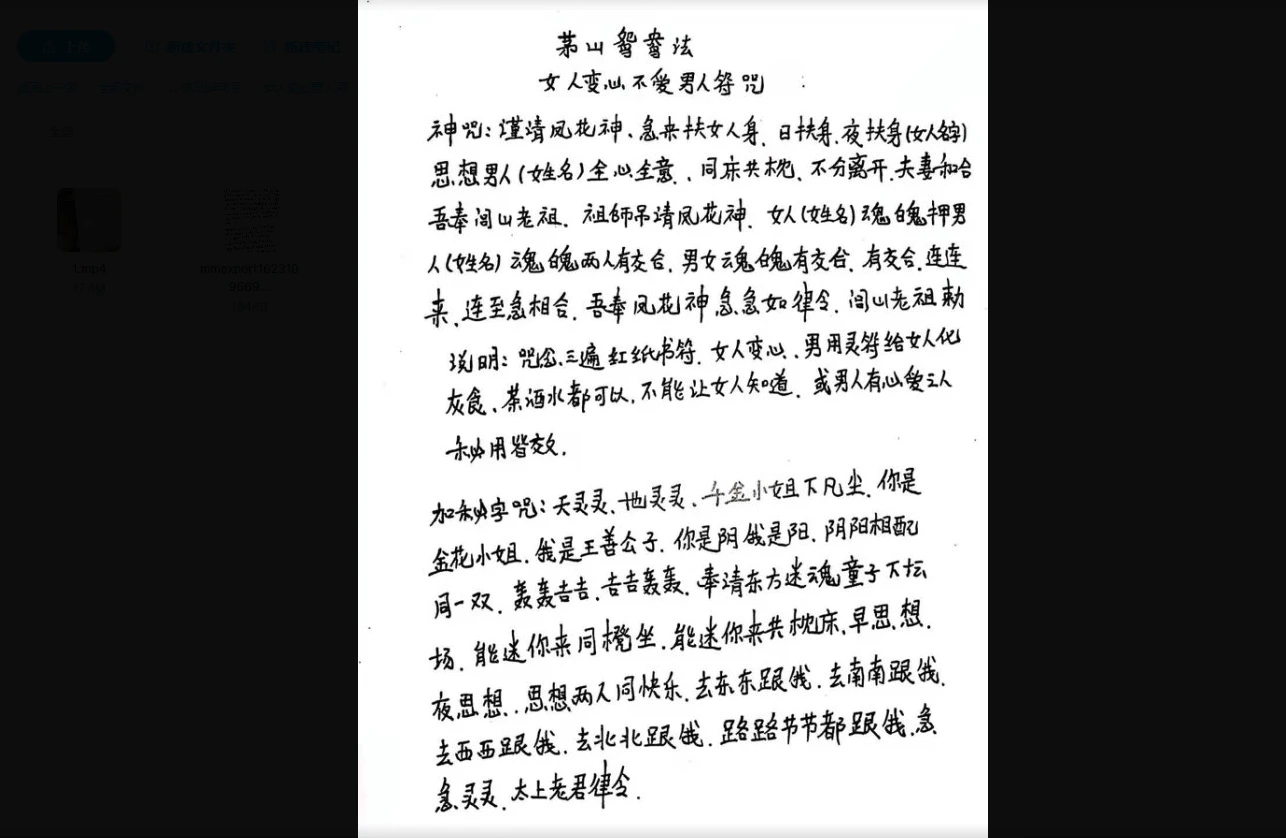 茅山鸳鸯法
女人变心不爱男人符咒
神咒：谨请凤花神、急来扶女人身．日扶身．夜扶身(女人名字)
思想男人(姓名)全心全意．同床共枕．不分离开．夫妻和合
吾奉闾山老祖．祖师吊请凤花神．女人(姓名)魂魄押男
人(姓名)魂魄两人有交合．男女魂魄有交合．有交合．连连
来．连至急相合．吾奉凤花神急急如律令．闾山老祖敕
说明：咒念三遍红纸书符．女人变心．男用灵符给女人化
灰食、茶酒水都可以．不能让女人知道．或男人有心爱之人
秘用皆效．
加秘字咒：天灵灵、地灵灵、千金小姐下凡尘．你是
金花小姐．我是王善公子．你是阴我是阳．阴阳相配
同一双．轰轰吉吉．吉吉轰轰．奉请东方迷魂童子下坛
场．能迷你来同櫈坐．能迷你来共枕床．早思想．
夜思想．思想两人同快乐．去东东跟我．去南南跟我．
去西西跟我．去北北跟我．路路节节都跟我．急
急灵灵．太上老君律令．
1.mp4